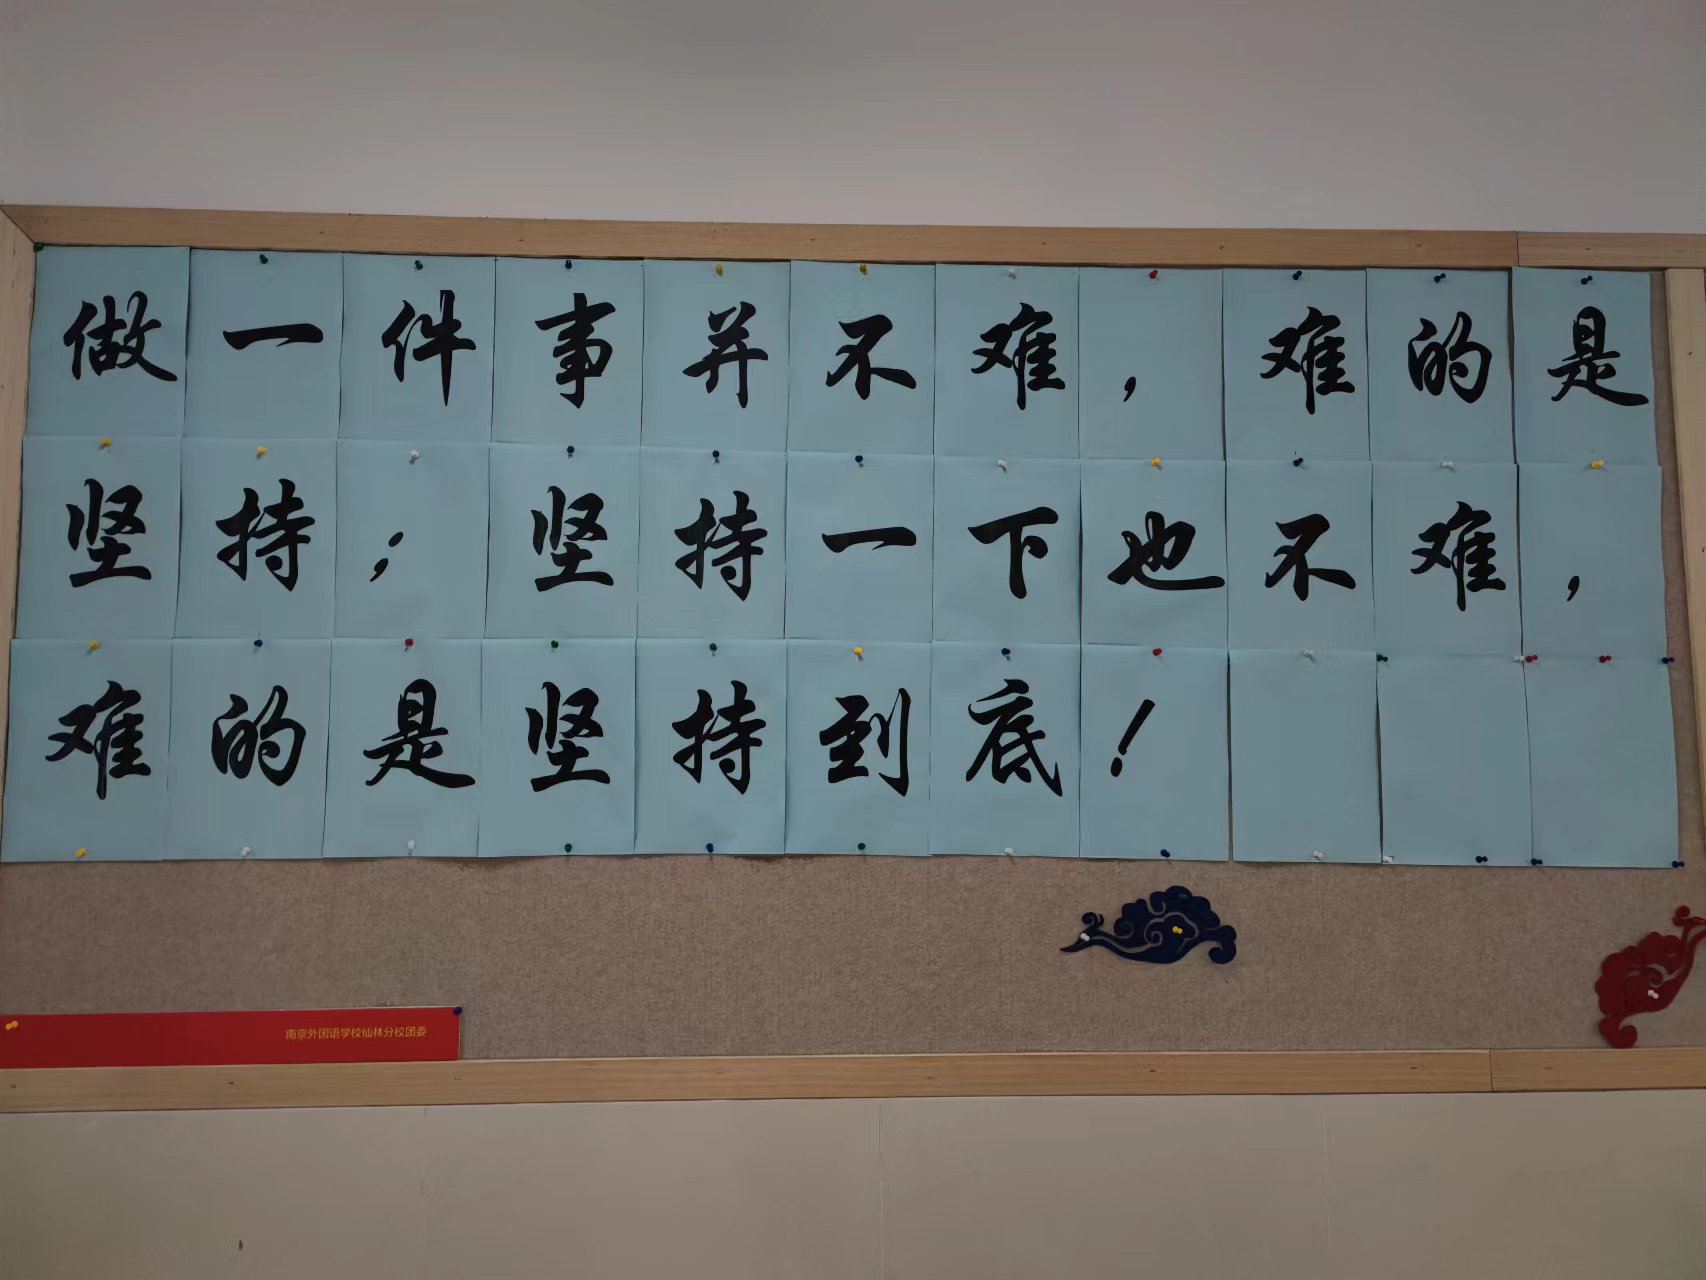 做一件事并不难，难的是
坚持；坚持一下也不难，
难的是坚持到底！
南京外国语学校仙林分校团委